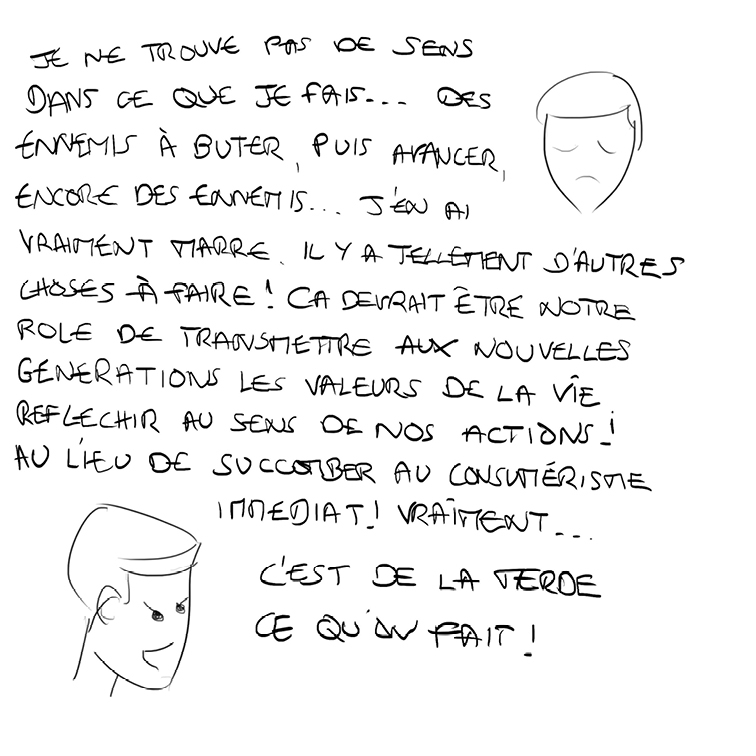 JE NE TROUVE PAS DE SENS
DANS CE QUE JE FAIS... DES
ENNEMIS À BUTER, PUIS AVANCER,
ENCORE DES ENNEMIS... J'EN AI
VRAIMENT MARRE. IL Y A TELLEMENT D'AUTRES
CHOSES À FAIRE! CA DEVRAIT ÊTRE NOTRE
ROLE DE TRANSMETTRE AUX NOUVELLES
GENERATIONS LES VALEURS DE LA VIE
REFLECHIR AU SENS DE NOS ACTIONS!
AU LIEU DE SUCCOMBER AU CONSUMÉRISME
IMMEDIAT! VRAIMENT...
C'EST DE LA MERDE
CE QU'ON FAIT!